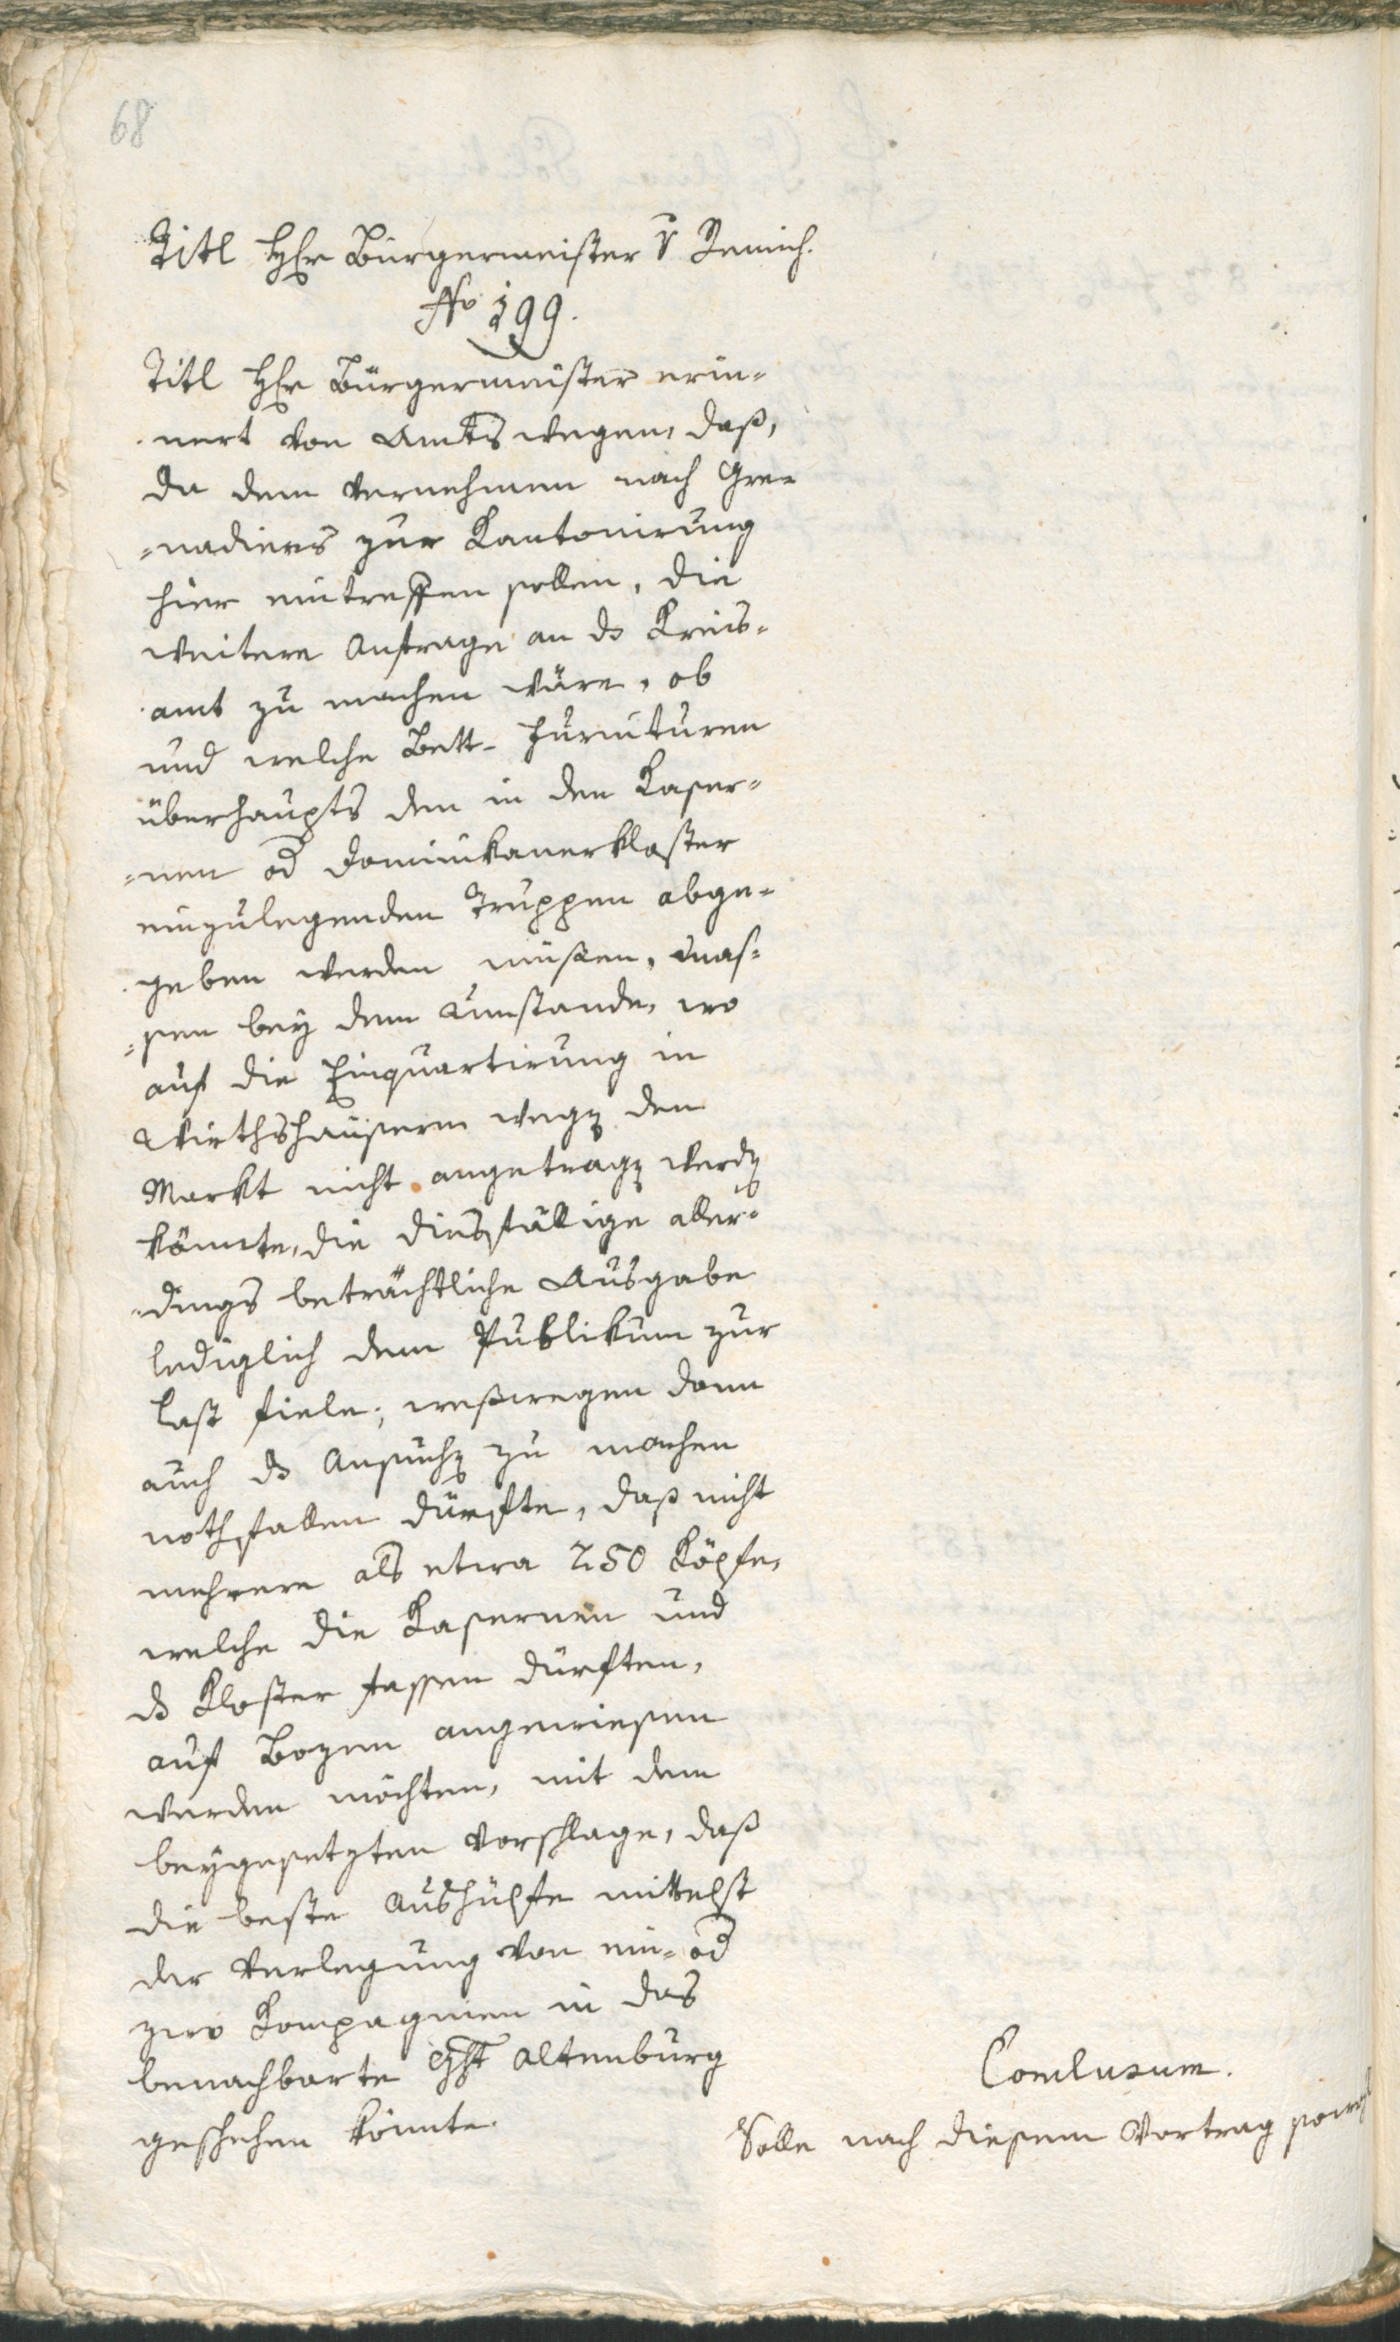 68
Titl Hhr Bürgermeister v Remich.
No 199.
Titl Hhr Bürgermeister erin-
nert von Amts wegen, daß,
da dem Vernehmen nach Gre-
=nadiers zur Kantonirung
hier eintreffen sollen, die
weitere Anfrage an ds Kreis-
amt zu machen wäre, ob
und welche Bett-Furnituren
überhaupts den in den Kaser=
=nen od Dominikanerkloster
einzulegenden Truppen abge-
geben werden müßen, mas=
=sen bey dem Umstande, wo
auf die Einquartirung in
Wirthshäusern wegen den
Markt nicht angetragen werden
könnte, die diesfällige aller-
dings beträchtliche Ausgabe
lediglich dem Publikum zur
Last fiele; weßwegen dann
auch ds Ansuchen zu machen
nothfallen dürfte, daß nicht
mehrere als etwa 250 Köpfe,
welche die Kasernen und
ds Kloster fassen dürften,
auf Bozen angewiesen
werden möchten, mit dem
beygesetzten Vorschlage, daß
die beste Aushülfe mittelst
der Verlegung von ein- od
zwo Kompagnien in das
benachbarte Ght Altenburg
geschehen könnte.
Conclusum.
Solle nach diesem Vortrag sowohl